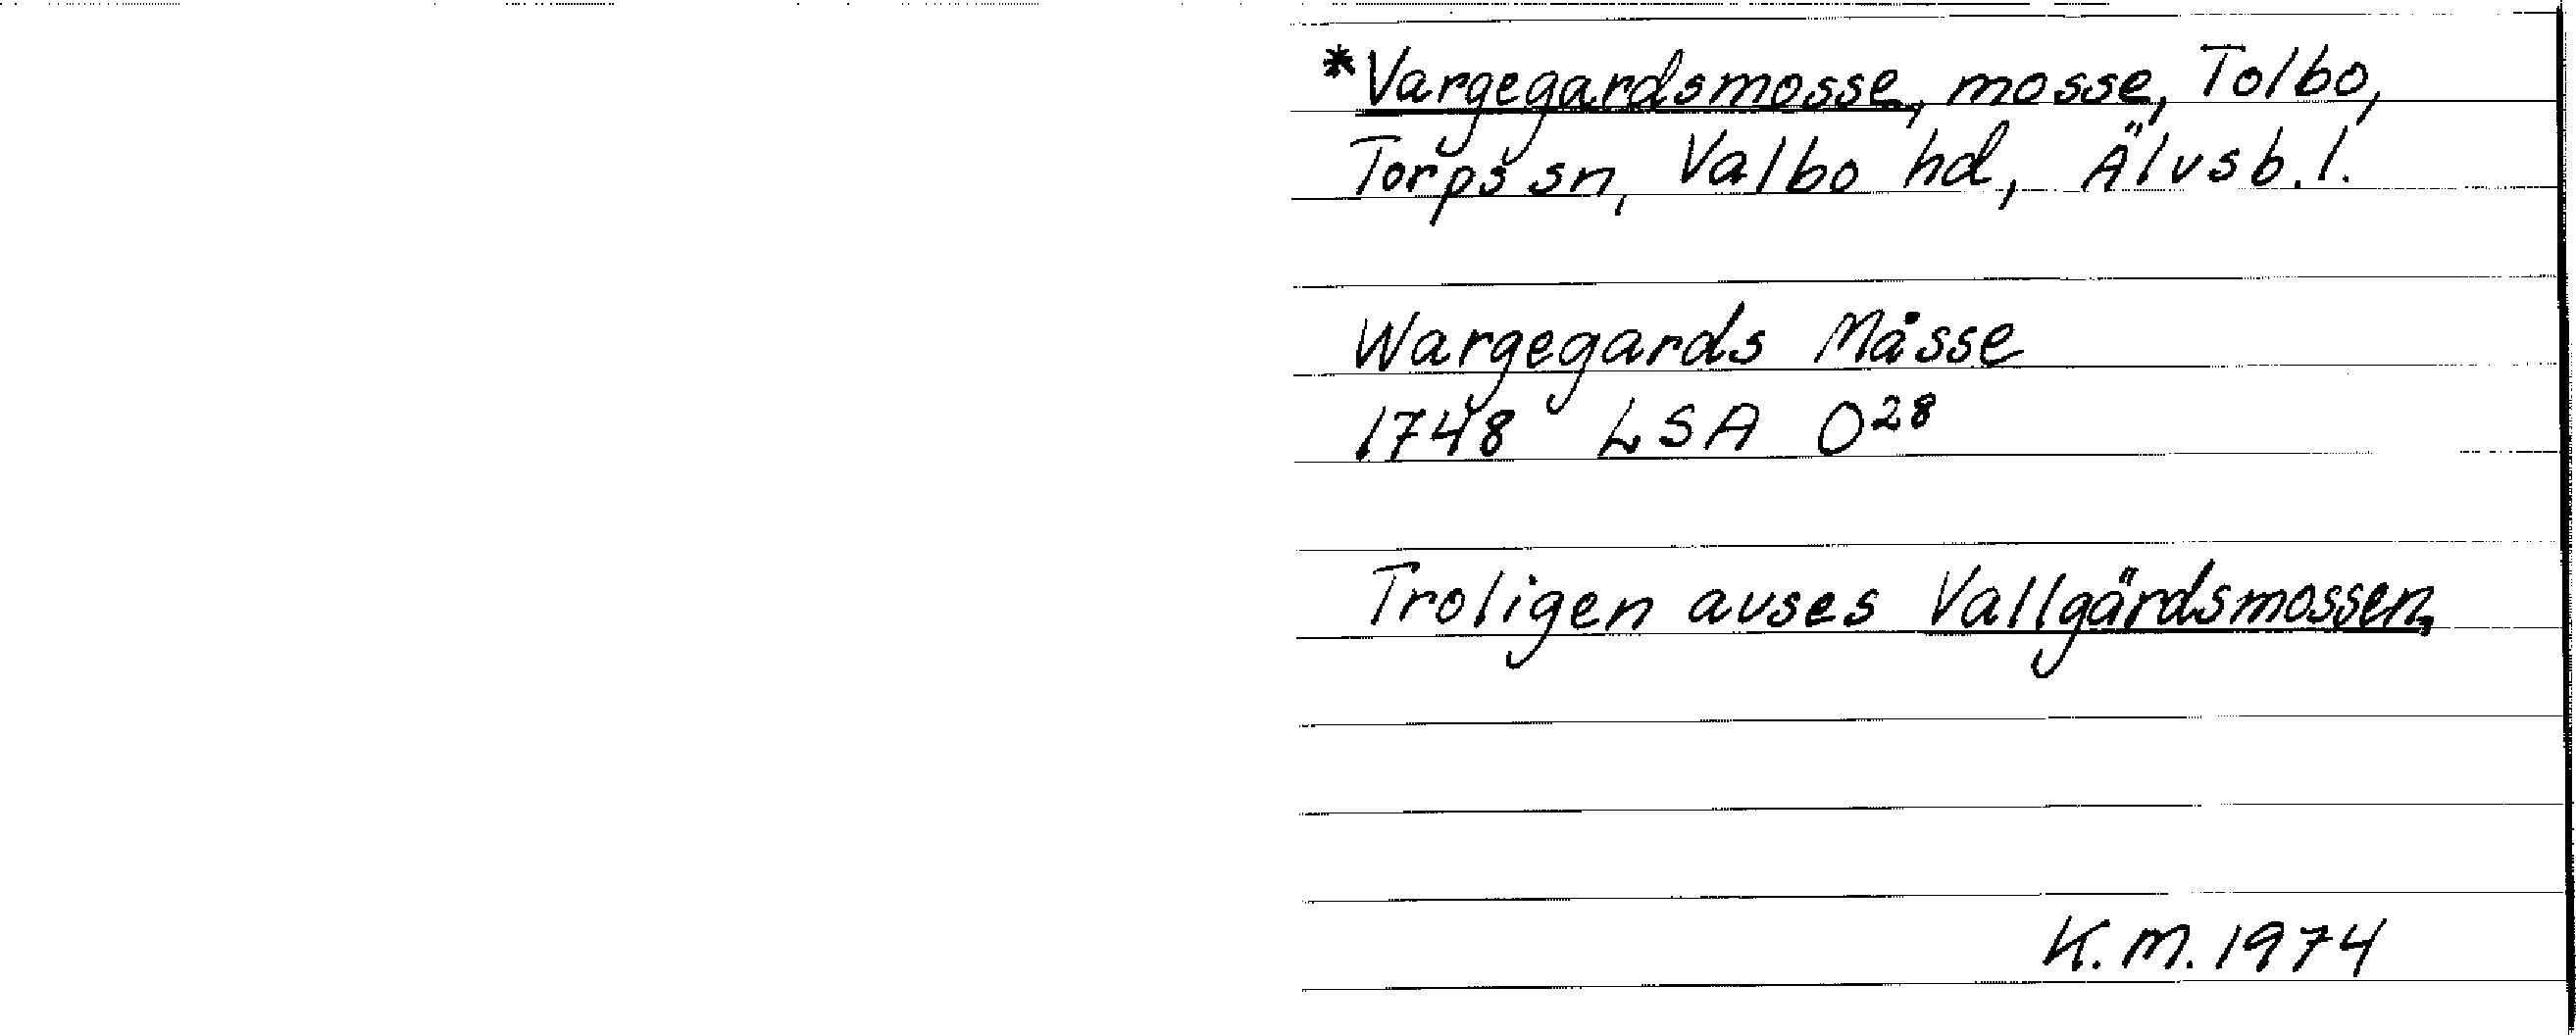 *Vargegardsmosse, mosse, Tolbo,
Torps sn, Valbo hd, Älvsb. l.
Wargegards Måsse
1748 LSA O²⁸
Troligen avses Vallgärdsmossen,
K. M. 1974